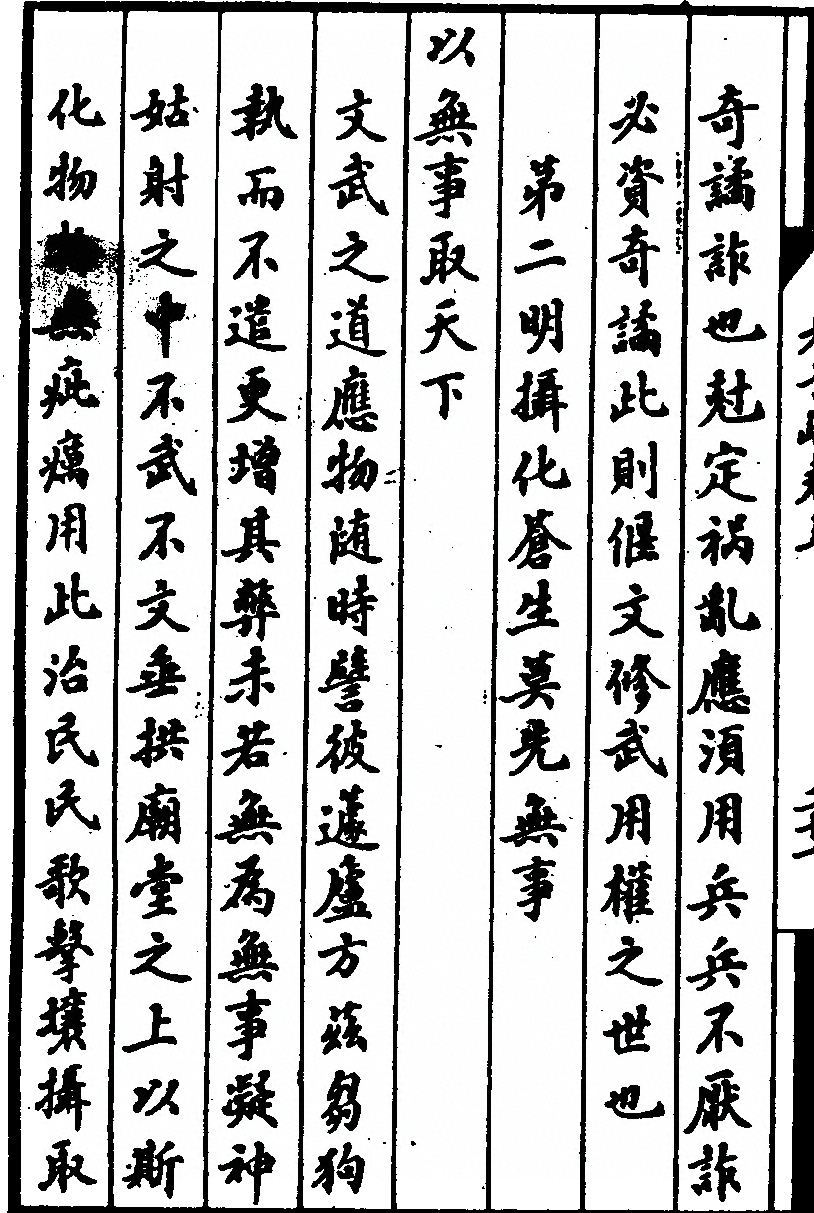 奇譎詐也尅定祸亂應須用兵兵不厭詐
必資奇譎此則偃文修武用權之世也
第二明攝化蒼生莫先無事
以無事取天下
文武之道應物随時譬彼蘧廬方茲芻狗
執而不遣更增其弊未若無為無事凝神
姑射之中不武不文垂拱廟堂之上以斯
化物無疵癘用此治民民歌擊壤攝取